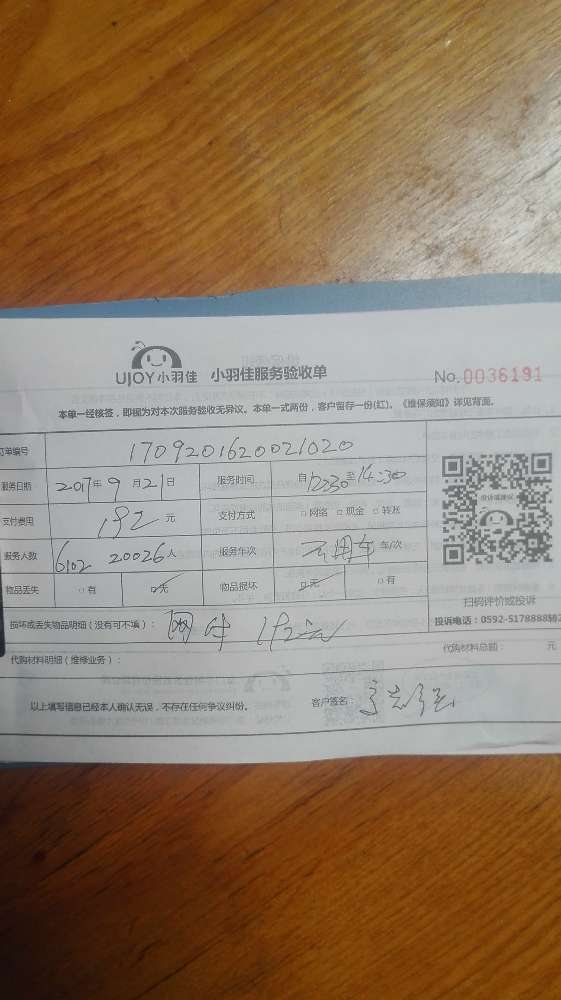 UJOY小羽佳 小羽佳服务验收单 No.0036191
本单一经核签，即视为对本次服务验收无异议。本单一式两份，客户留存一份(红)。《维保须知》详见背面。
订单编号 1709201620021020
服务日期 2017年9月21日 服务时间 自12:30至14:30
支付费用 192元 支付方式 □网络 □现金 □转账
服务人数 6102 20026人 服务车次 不用车 车/次
物品丢失 □有 ☑无 物品损坏 ☑无 □有
扫码评价或投诉
损坏或丢失物品明细（没有可不填）： 192元
投诉电话：0592-5178888转2
代购材料明细（维修业务）： 代购材料总额： 元
以上填写信息已经本人确认无误，不存在任何争议纠纷。 客户签名：